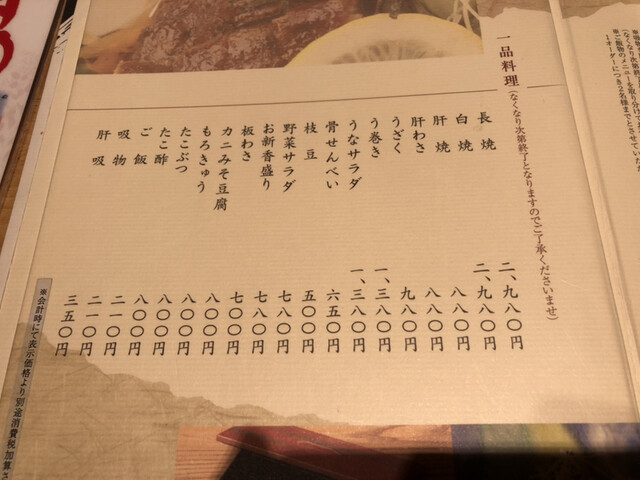 一品料理(なくなり次第終了となりますのでご了承くださいませ)
長焼 二、九八〇円
白焼 二、九八〇円
肝焼 八〇〇円
肝わさ 八〇〇円
うざく 九八〇円
う巻き 一、三八〇円
うなサラダ 一、三八〇円
骨せんべい 六五〇円
枝豆 五〇〇円
野菜サラダ 七八〇円
お新香盛り 七八〇円
板わさ 七〇〇円
カニみそ豆腐 八〇〇円
もろきゅう 八〇〇円
たこぶつ 八〇〇円
たこ酢 八〇〇円
ご飯 二一〇円
吸物 二一〇円
肝吸 三五〇円
※会計時にて表示価格より別途消費税加算さ
(なくなり次第
※ご飯物のメニューを取り分けて
1オーダーにつき2名様までとさせていた